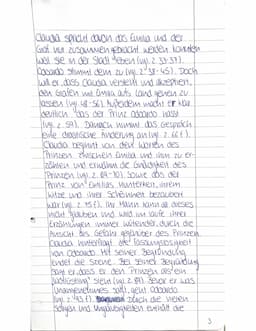 Claudia spricht davon, das Emilia und der
Graf nur zusammen gebracht werden konnten
weil sie in der Stadt leben (vgl. Z. 33-37).
Odoardo stimmt dem zu (vgl. Z. 38-45). Doch
will er, dass Claudia versteht und akzeptiert,
den Grafen mit Emilia aufs Land gehen zu
lassen (vgl. 48-56). Außerdem macht er klar
deutlich, das der Prinz Odoardo hasst
(vgl. Z. 59). Danach nimmt das Gespräch
eine drastische Änderung an (vgl. 66 f).
Claudia beginnt von den
Prinzen zwischen Emilia und ihm zu er-
zählen und erwähnt die Gnädigkeit des
Prinzen (vgl. 69-70). Sowie das der
Prinz von Emilias Munterkeit, ihrem
Witze und ihrer Schönheit bezaubert
war (vgl. 75 f). Ihr Mann kann all dieses
nicht glauben und wird im laufe ihrer
Erzählungen immer wütender, durch die
Ansicht des Gefahr gegenüber des Prinzen
Claudia hinterfragt die Fassungslosigkeit
von Odoardo. Mit seiner Begründung
endet die Szene. Bei seiner Begründung
sagt er, dass er den Prinzen als ein
"Wollüstling" sieht (vgl. Z. 84). Bevor er was
unangenehmes sagt, geht Odoardo
(vgl. Z. 93 f). Durch die vielen
Sorgen und enthält die
3